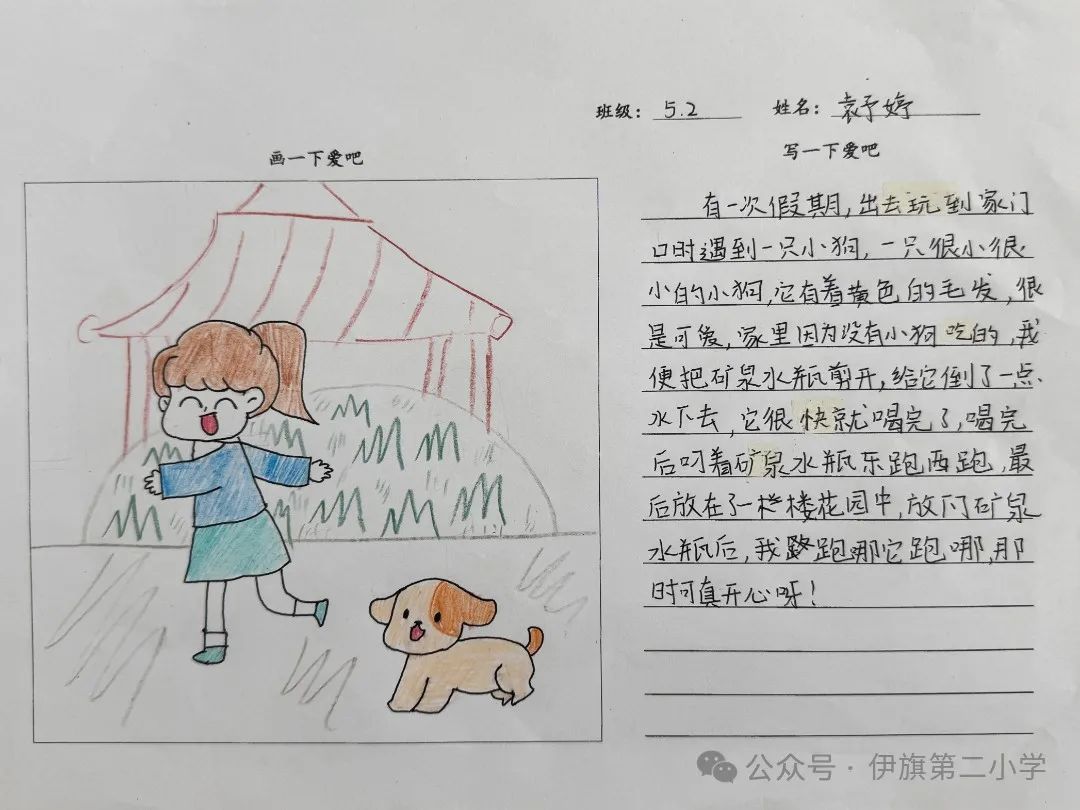 班级：5.2 姓名：袁予婷
画一下爱吧
写一下爱吧
有一次假期，出去玩到家门
口时遇到一只小狗，一只很小很
小的小狗，它有着黄色的毛发，很
是可爱，家里因为没有小狗吃的，我
便把矿泉水瓶剪开，给它倒了一点
水下去，它很快就喝完了，喝完
后叼着矿泉水瓶东跑西跑，最
后放在了一栏楼花园中，放下矿泉
水瓶后，我跑哪它跑哪，那
时可真开心呀！
公众号·伊旗第二小学